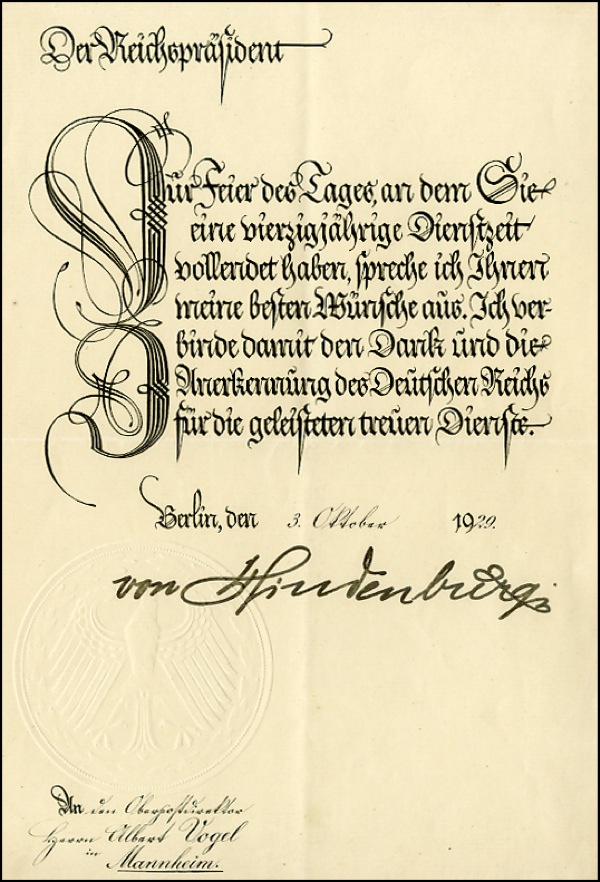 Der Reichspräsident
Zur Feier des Tages, an dem Sie
eine vierzigjährige Dienstzeit
vollendet haben, spreche ich Ihnen
meine besten Wünsche aus. Ich ver-
binde damit den Dank und die
Anerkennung des Deutschen Reichs
für die geleisteten treuen Dienste.
Berlin, den 3. Oktober 1929.
von Hindenburg
An den Oberpostdirektor
Herrn Albert Vogel
in
Mannheim.